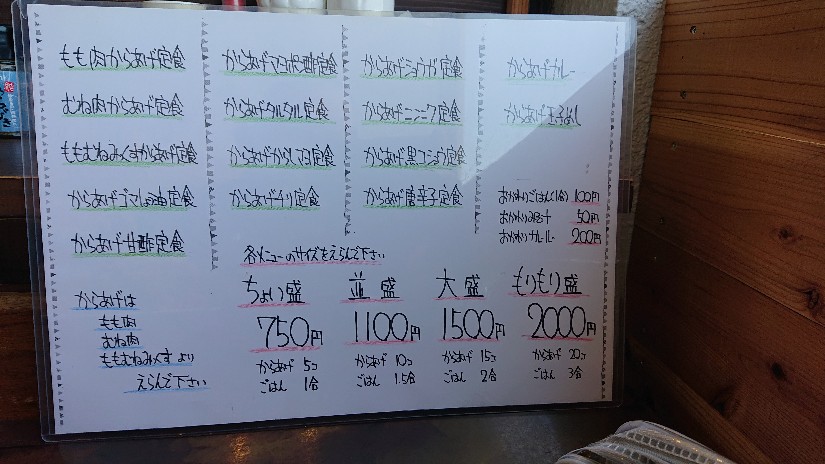 もも肉からあげ定食
むね肉からあげ定食
ももむねみっくすからあげ定食
からあげゴマしょう油定食
からあげ甘酢定食
からあげマヨポン酢定食
からあげタルタル定食
からあげからしマヨ定食
からあげチリ定食
からあげショウガ定食
からあげニンニク定食
からあげ黒コショウ定食
からあげ唐辛子定食
からあげカレー
からあげ玉子とじ
おかわりごはん(1合) 100円
おかわりみそ汁 50円
おかわりカレールー 200円
各メニューのサイズをえらんで下さい
からあげは
もも肉
むね肉
ももむねみっくす より
えらんで下さい
ちょい盛
750円
からあげ 5コ
ごはん 1合
並盛
1100円
からあげ 10コ
ごはん 1.5合
大盛
1500円
からあげ 15コ
ごはん 2合
もりもり盛
2000円
からあげ 20コ
ごはん 3合